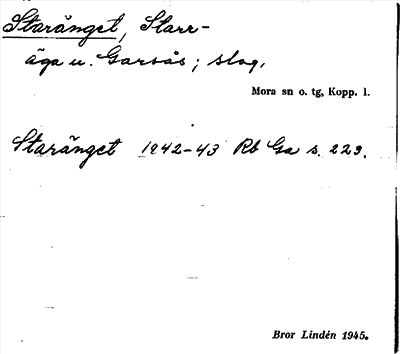 Staränget, Starr-
äga u. Garsås; slog.
Mora sn o. tg, Kopp. l.
Staränget 1942-43 Rb Ga s. 223.
Bror Lindén 1945.